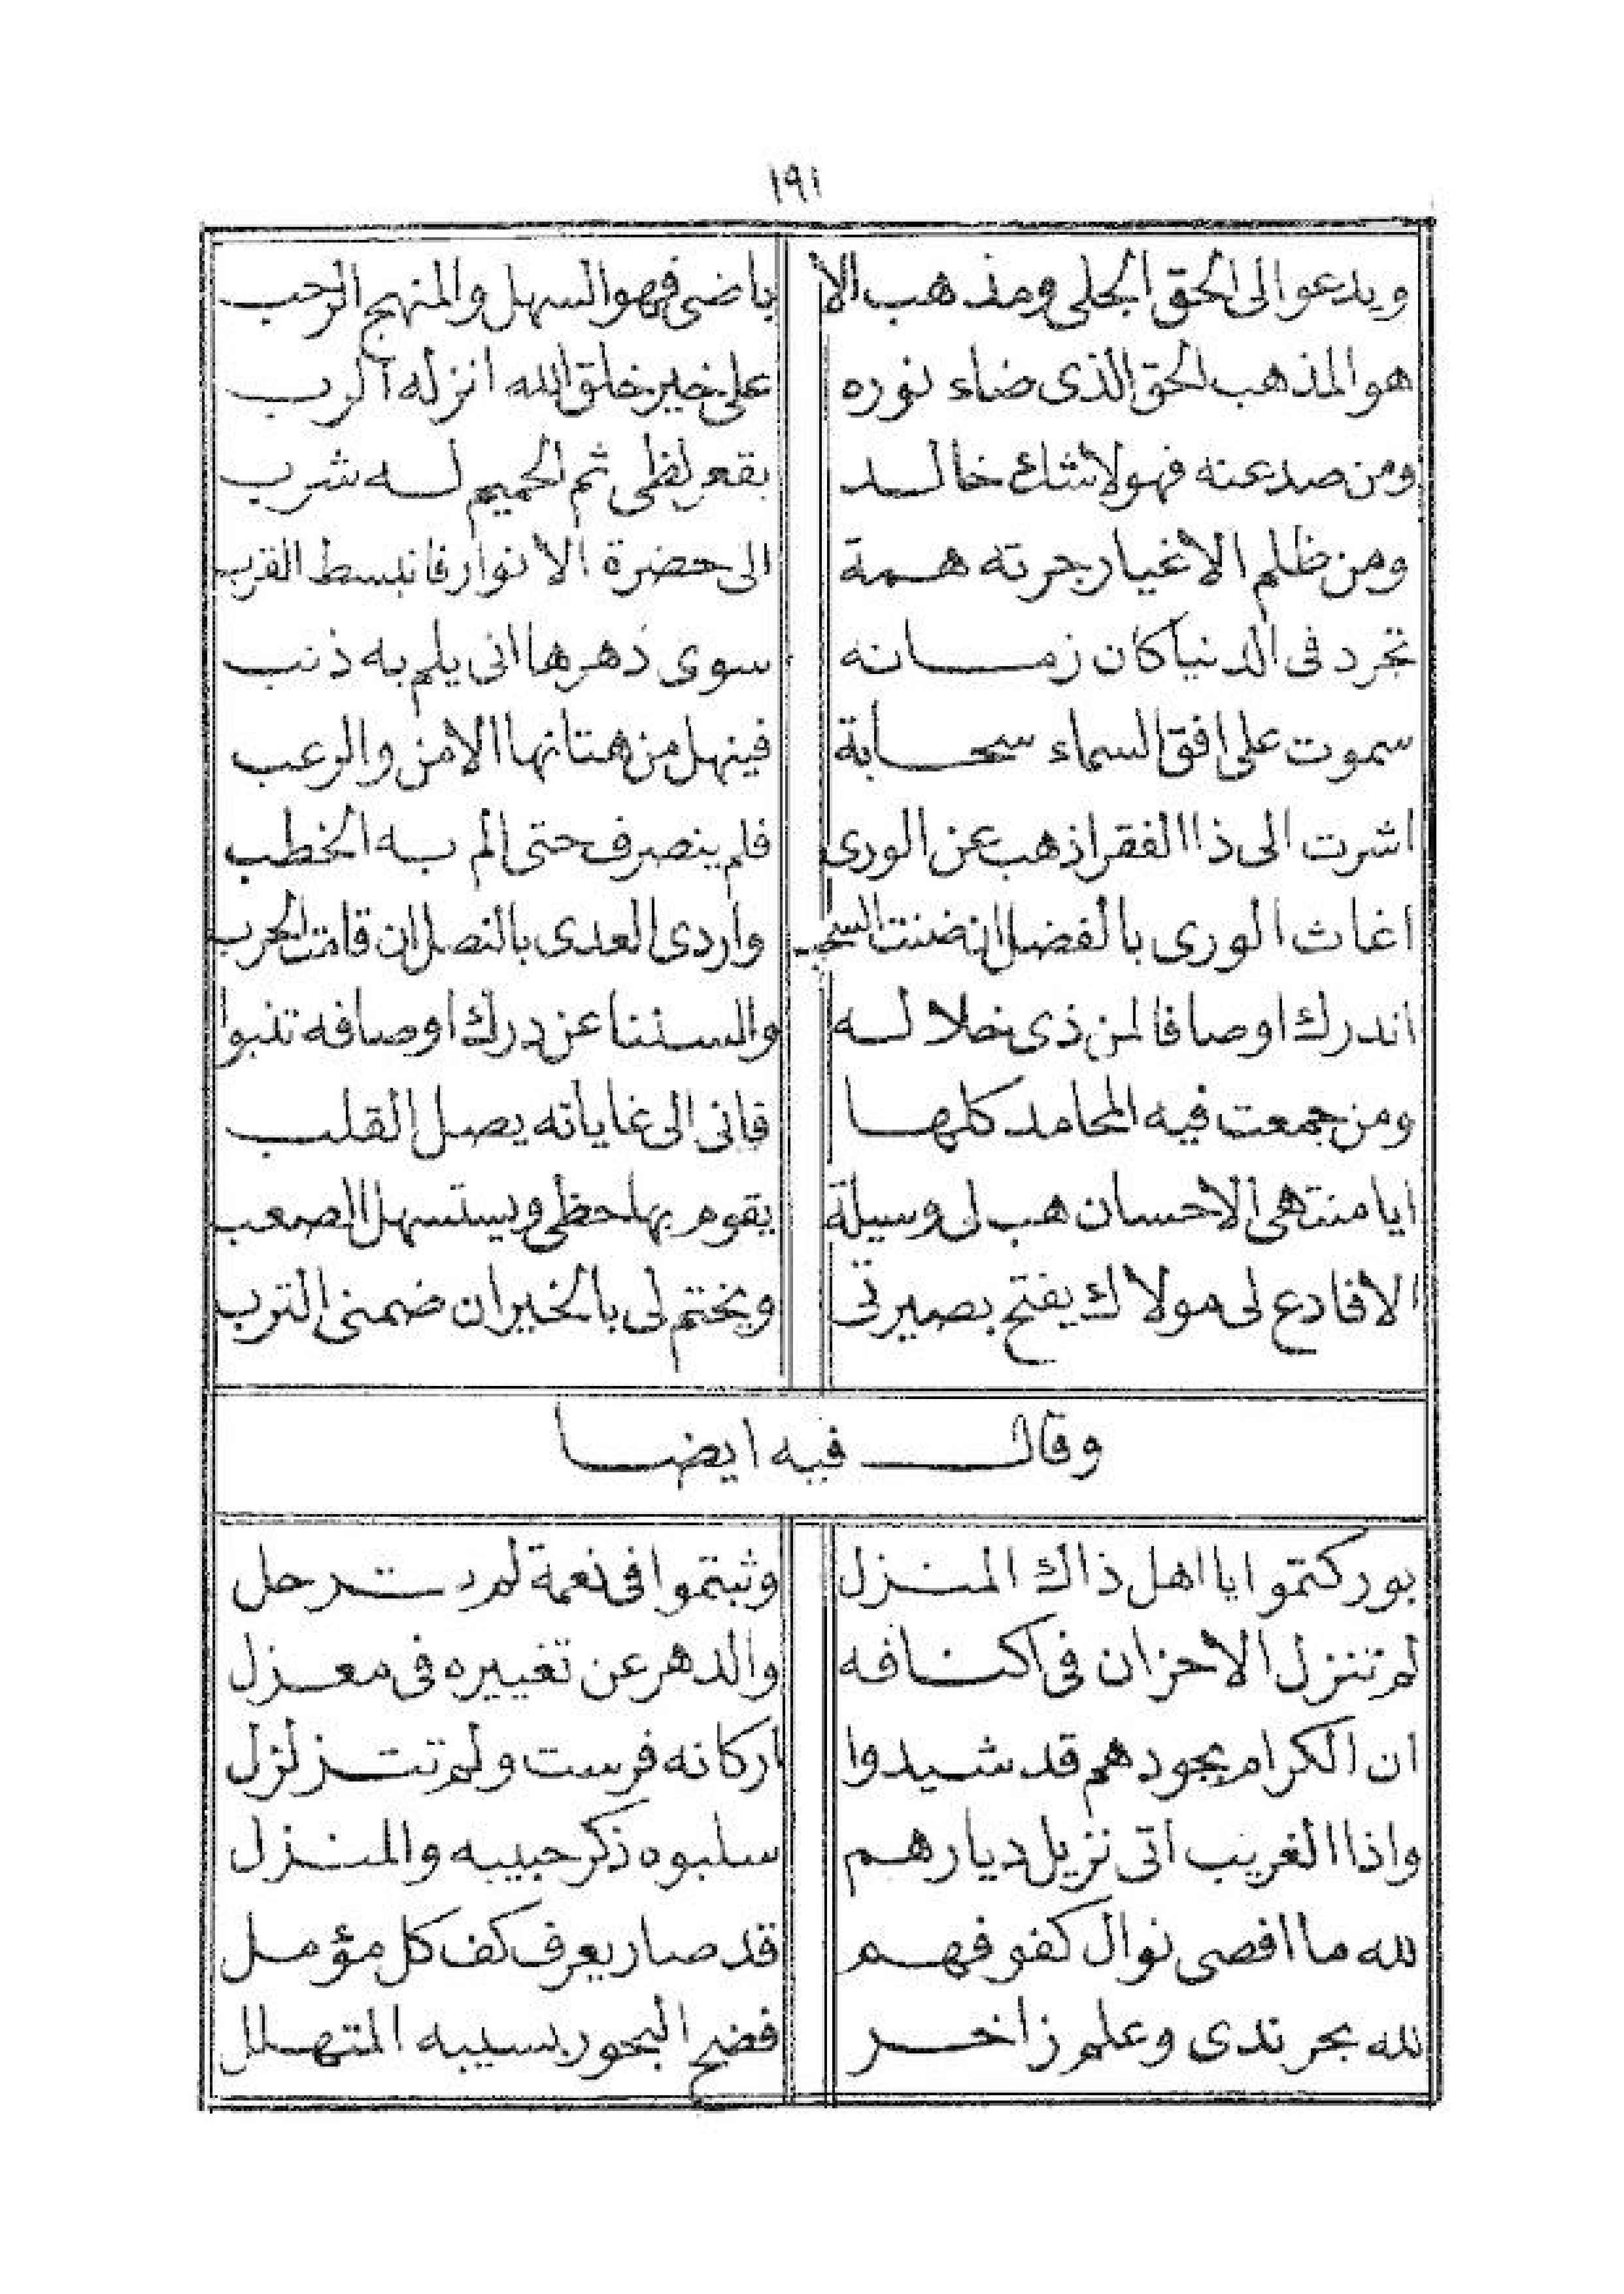 ١٩١
ويدعو الى الحق الجلى ومذهب الا باضى فهو السهل والمنهج الرحب
هو المذهب الحق الذى ضاء نوره على خير خلق الله انزله الرب
ومن صد عنه فهو لاشك خالد بقعر لظى ثم الحميم له شرب
ومن ظلم الاغيار جرته همة الى حضرة الانوار فانبسط القرب
تجرد فى الدنيا كان زمانه سوى دهرها انى يلم به ذنب
سموت على افق السماء سحابة فينهل من هتانها الامن والرعب
اشرت الى ذا الفقر اذهب عن الورى فلم ينصرف حتى الم به الخطب
اغاث الورى بالفضل ان ضنت السحب واردى العدى بالنصل ان قامت الحرب
اندرك اوصافا لمن ذى خلاله والسننا عن درك اوصافه تنبوا
ومن جمعت فيه المحامد كلها فانى الى غاياته يصل القلب
ايا منتهى الاحسان هب لى وسيلة يقوم بها حظى ويستسهل الصعب
الا فادع لى مولاك يفتح بصيرتى ويختم لى بالخير ان ضمنى الترب
وقال فيه ايضا
بوركتموا يا اهل ذاك المنزل وثبتموا فى نعمة لم ترحل
لم تنزل الاحزان فى اكنافه والدهر عن تغييره فى معزل
ان الكرام بجودهم قد شيدوا اركانه فرست ولم تتزلزل
واذا الغريب اتى نزيل ديارهم سلبوه ذكر حبيبه والمنزل
لله ما اقصى نوال كفوفهم قد صار يعرف كف كل مؤمل
لله بحر ندى وعلم زاخر فضح البحور بسيبه المتهلل